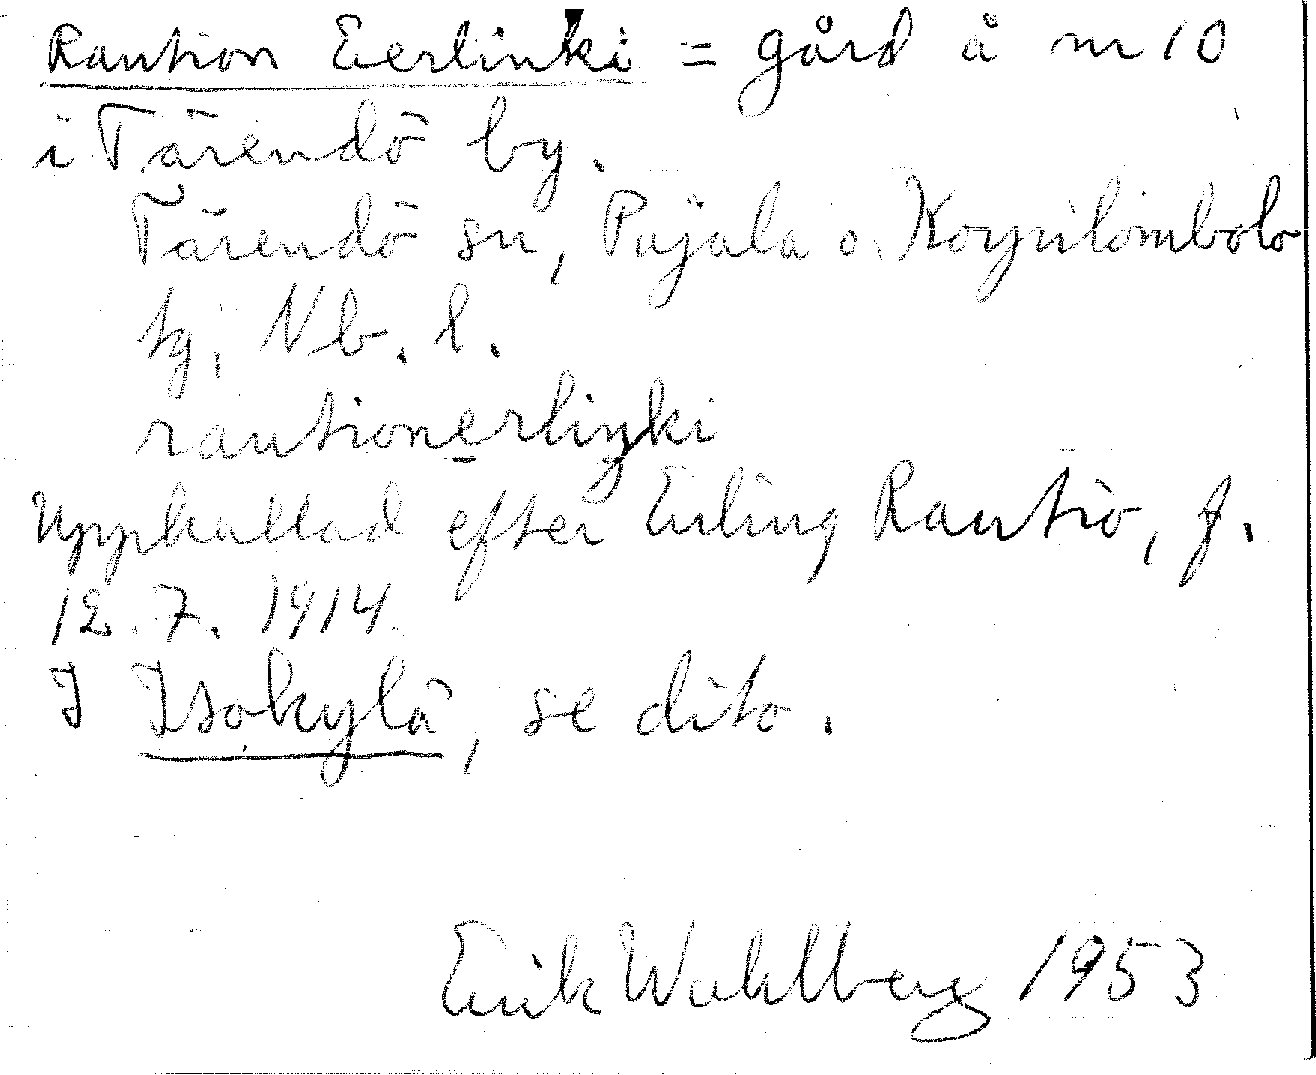 Raution Eerlinki = gård å nr 10
i Tärendö by.
Tärendö sn, Pajala o. Korpilombolo
tg, Nb. l.
rautione̱rliŋki
Uppkallad efter Erling Rautio, f.
12. 7. 1914
I Isokylä, se dito.
Erik Wahlberg 1953